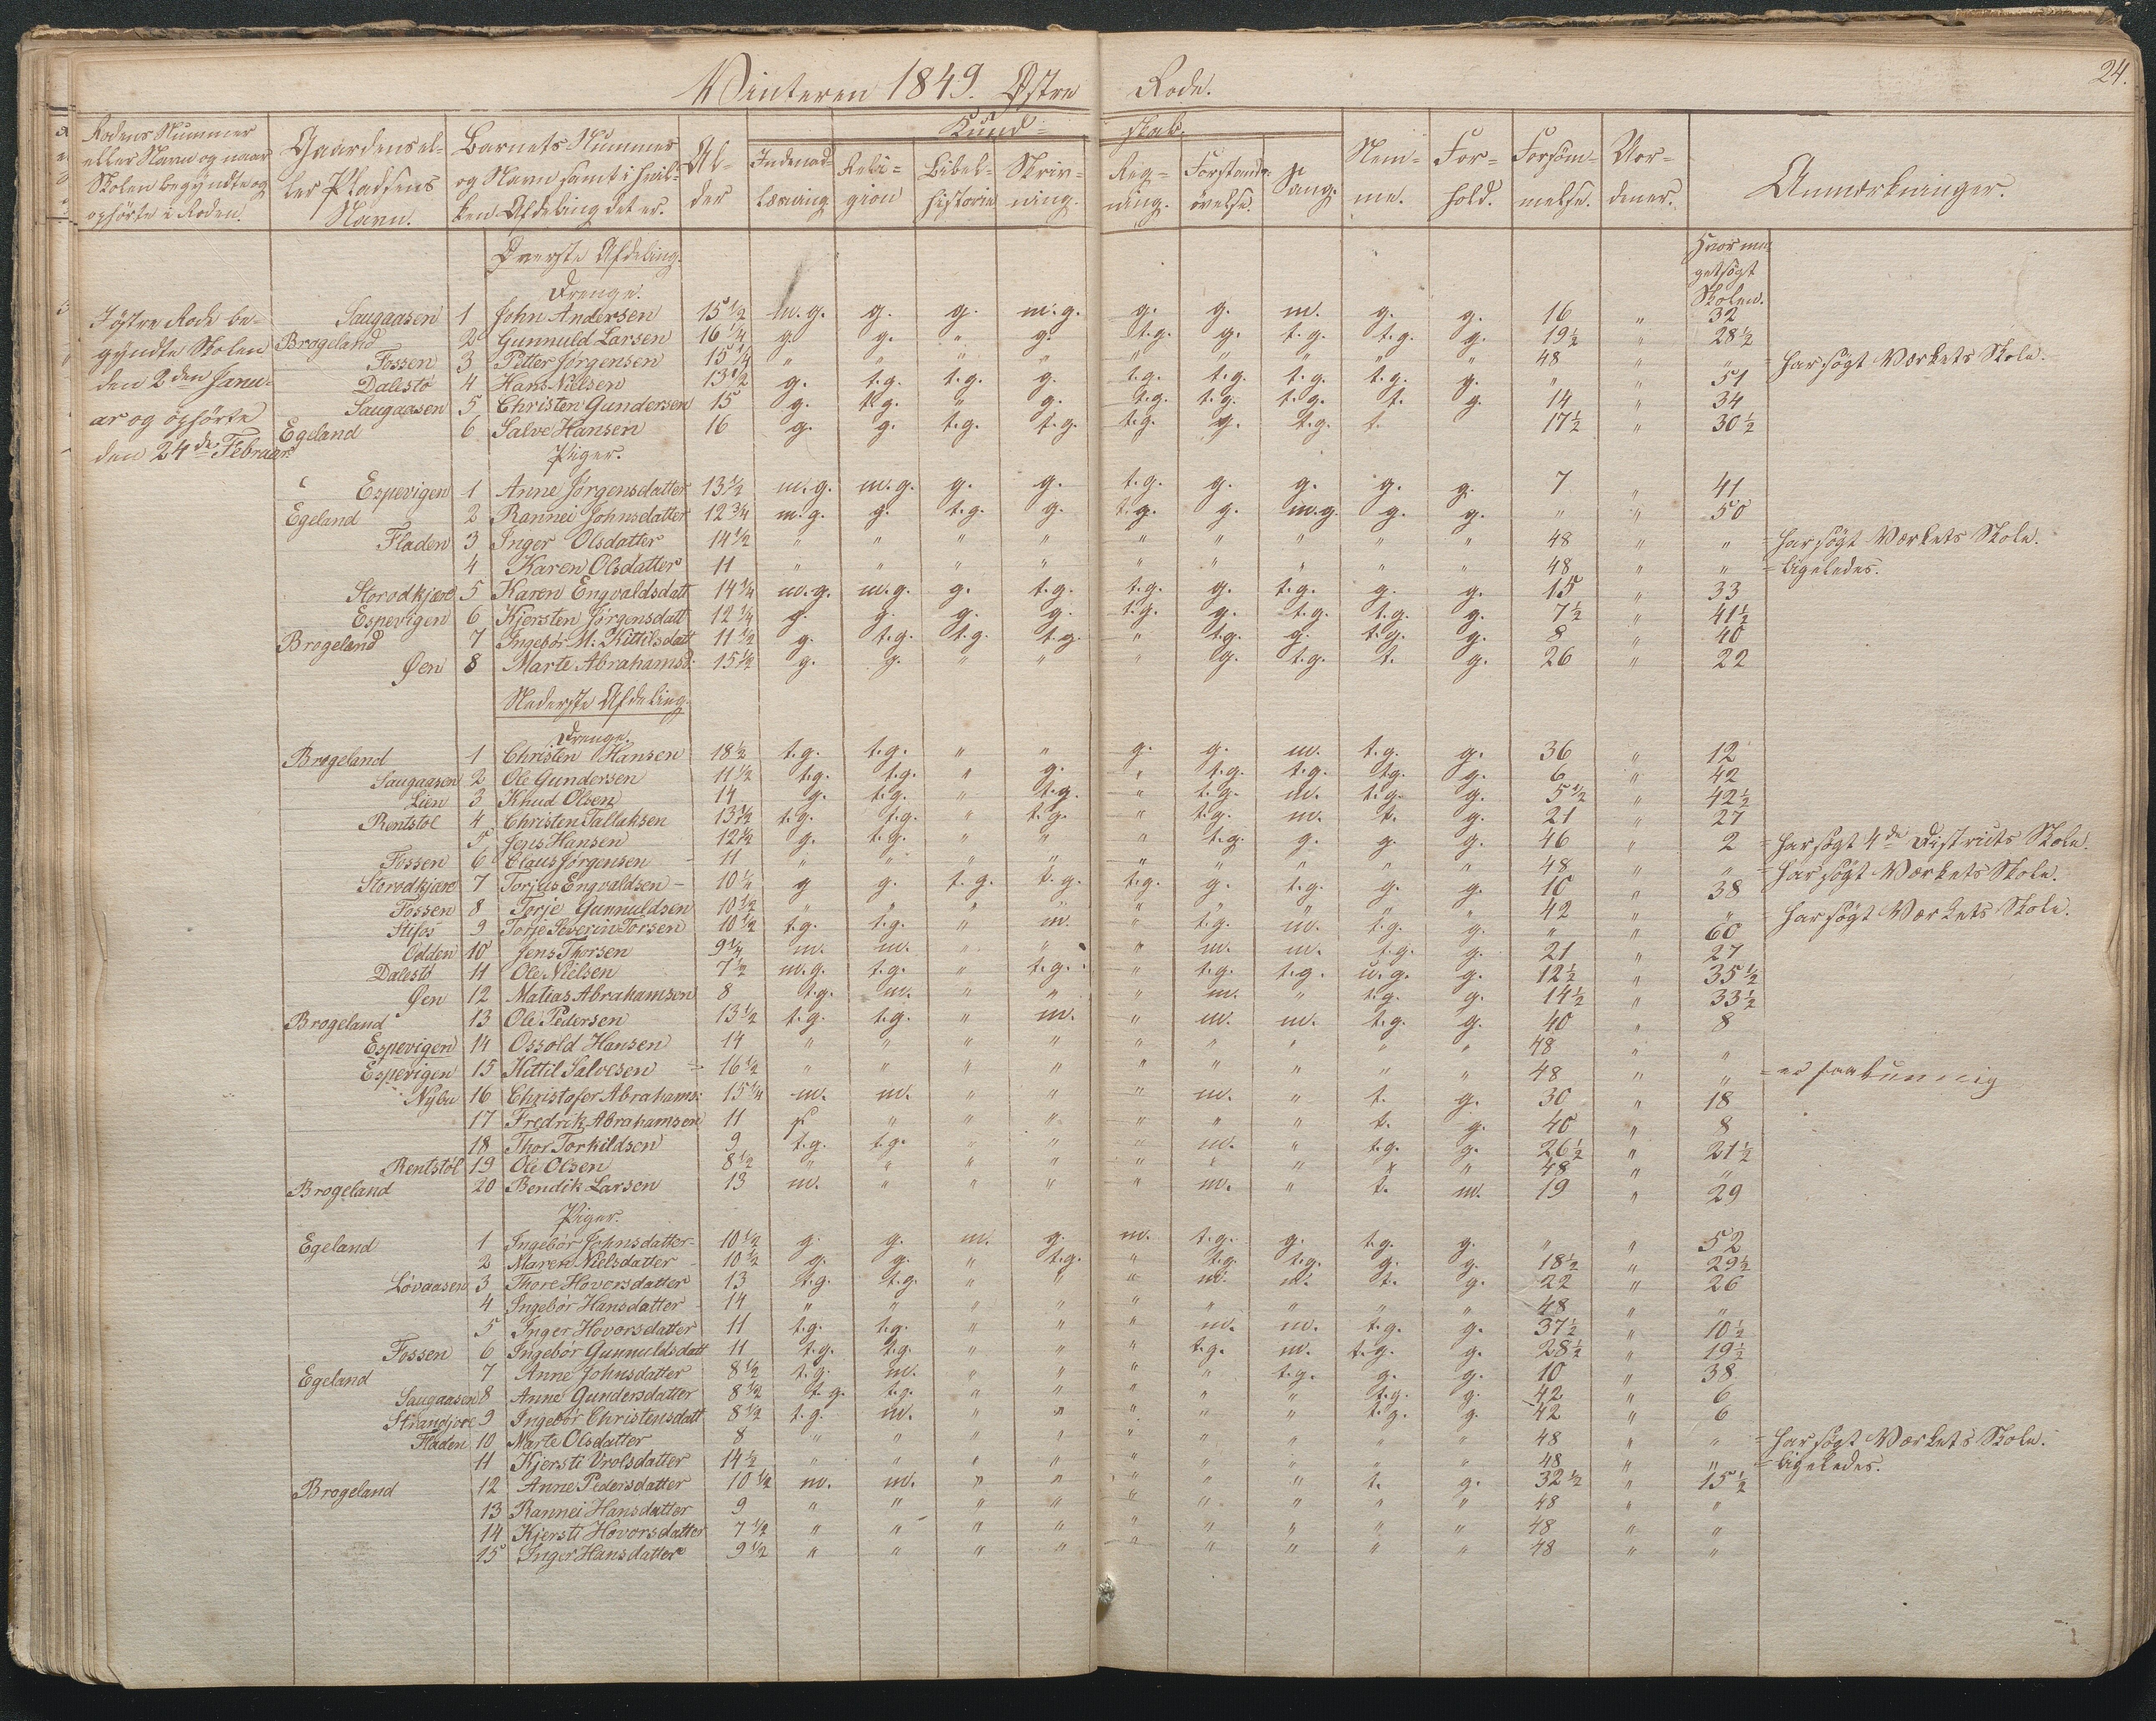 24.
Vinteren 1849. Østre Rode.
Rodens Nummer eller Navn og naar Skolen begyndte og ophørte i Roden. | Gaardens eller Pladsens Navn. | Barnets Nummer og Navn samt i hvilken Afdeling det er. | Alder | Kundskab. | Nemme. | Forhold. | Forsømmelse. | Anmærkninger.
Indenadlæsning | Religion | Bibelhistorie | Skrivning. | Regning. | Forstandsøvelse. | Sang.
Hvor meget søgt Skolen.
I østre Rode begyndte Skolen den 2den Januar og ophørte den 24de Februar
Øverste Afdeling.
Drenge.
Saugaasen 1 John Andersen 15 1/2 m.g. g. g. m.g. g. g. m. g. g. 16 " 32
Brogeland 2 Gunnuld Larsen 16 1/4 g. g. " g. t.g. g. t.g. t.g. g. 19 1/2 " 28 1/2
Fossen 3 Petter Jørgensen 15 1/4 " " " " " " " " " 48 " " = har søgt Værkets Skole.
Dalestö 4 Hans Nielsen 13 1/2 g. t.g. t.g. g. t.g. t.g. t.g. t.g. g. " " 51
Saugaasen 5 Christen Gundersen 15 g. t.g. " g. t.g. t.g. t.g. t. g. 14 " 34
Egeland 6 Salve Hansen 16 g. g. t.g. t.g. t.g. g. t.g. t. 17 1/2 " 30 1/2
Piger.
Espevigen 1 Anne Jørgensdatter 13 1/2 m.g. m.g. g. g. t.g. g. g. g. g. 7 " 41
Egeland 2 Rannei Johnsdatter 12 3/4 m.g. g. t.g. g. t.g. g. m.g. g. g. " " 50
Fladen 3 Inger Olsdatter 14 1/2 " " " " " " " " " 48 " " = har søgt Værkets Skole.
4 Karen Olsdatter 11 " " " " " " " " " 48 " " = ligeledes.
Storodkjære 5 Karen Engvaldsdatt 14 1/4 m.g. m.g. g. t.g. t.g. g. t.g. g. g. 15 " 33
Espevigen 6 Kjersten Jørgensdatt 12 1/4 g. g. g. g. t.g. g. t.g. t.g. g. 7 1/2 " 41 1/2
Brogeland 7 Ingebör M. Kittilsdatt 11 1/2 g. t.g. t.g. t.g. " t.g. g. t.g. g. 8 " 40
Øen 8 Marte Abrahamsd. 15 1/2 g. g. " " " g. t.g. t. g. 26 " 22
Nederste Afdeling.
Drenge.
Brogeland 1 Christen Hansen 18 1/2 t.g. t.g. " " g. g. m. t.g. g. 36 " 12
Saugaasen 2 Ole Gundersen 11 1/2 t.g. t.g. " g. " t.g. t.g. t.g. g. 6 " 42
Lien 3 Knud Olsen 14 g. t.g. " t.g. " t.g. m. t.g. g. 5 1/2 " 42 1/2
Rentstöl 4 Christen Tallaksen 13 1/2 t.g. t.g. " t.g. " t.g. m. t. g. 21 " 27
5 Jens Hansen 12 1/2 g. t.g. " " " t.g. g. g. g. 46 " 2 = har søgt 4de Districts Skole.
Fossen 6 Claus Jørgensen 11 " " " " " " " " " 48 " " = har søgt Værkets Skole.
Storodkjære 7 Torjus Engvaldsen 10 1/2 g g. t.g. t.g. t.g. g. t.g. g. g. 10 " 38
Fossen 8 Torje Gunnuldsen 10 1/2 " " " " " " " " " 42 " " = har søgt Værkets Skole.
Stifos 9 Torje Severin Torsen 10 1/2 t.g. t.g. " m. " t.g. m. t.g. g. " " 60
Odden 10 Jens Thorsen 9 1/4 m. m. " " " m. m. t.g. g. 21 " 27
Dalestö 11 Ole Nielsen 7 1/2 m.g. t.g. " t.g. " t.g. t.g. u.g. g. 12 1/2 " 35 1/2
Øen 12 Matias Abrahamsen 8 t.g. m. " " " m. " t.g. g. 14 1/2 " 33 1/2
Brogeland 13 Ole Pedersen 13 1/2 t.g. t.g. " m. " m. m. t.g. g. 40 " 8
Espevigen 14 Ossold Hansen 14 " " " " " " " " " 48 " "
Espevigen 15 Kittil Salvesen 16 1/2 " " " " " " " " " 48 " "
Nybu 16 Christofer Abrahams: 15 1/4 m. m. " " " m. " t. g. 30 " 18
17 Fredrik Abrahamsen 11 " " " " " " t. g. 40 " 8
18 Thor Torkildsen 9 t.g. t.g. " " " m. " t.g. g. 26 1/2 " 21 1/2
Rentstöl 19 Ole Olsen 8 1/2 " " " " " " " " " 48 " "
Brogeland 20 Bendik Larsen 13 m. " " " " m. " t. m. 19 " 29
Piger.
Egeland 1 Ingebör Johnsdatter 10 1/2 g. g. m. g. m. t.g. g. t.g. g. " " 52
2 Maren Nielsdatter 10 1/2 g. g. " t.g. " t.g. t.g. g. g. 18 1/2 " 29 1/2
Løvaasen 3 Thore Hovorsdatter 13 t.g. t.g. " " " m. m. t. g. 22 " 26
4 Ingebör Hansdatter 14 " " " " " " " " " 48 " "
5 Inger Hovorsdatter 11 t.g. t.g. " " " m. m. t.g. g. 37 1/2 " 10 1/2
Fossen 6 Ingebör Gunnuldsdatt 11 t.g. t.g. " " " t.g. m. t.g. g. 28 1/2 " 19 1/2
Egeland 7 Anne Johnsdatter 8 1/2 t.g. m. " " " " t.g. g. g. 10 " 38
Saugaasen 8 Anne Gundersdatter 8 1/2 t.g. t.g. " " " " " t.g. g. 42 " 6
9 Ingebör Christensdatt 8 1/2 t.g. m. " " " " " t.g. g. 42 " 6
Fladen 10 Marte Olsdatter 8 " " " " " " " " " 48 " " = har søgt Værkets Skole.
11 Kjersti Vrolsdatter 14 1/2 " " " " " " " " " 48 " " = ligeledes.
Brogeland 12 Anne Pedersdatter 10 1/2 m. m. " " " " " t. g. 32 1/2 " 15 1/2
13 Rannei Hansdatter 9 " " " " " " " " " 48 " "
14 Kjersti Hovorsdatter 7 1/2 " " " " " " " " " 48 " "
15 Inger Hansdatter 9 1/2 " " " " " " " " " 48 " "